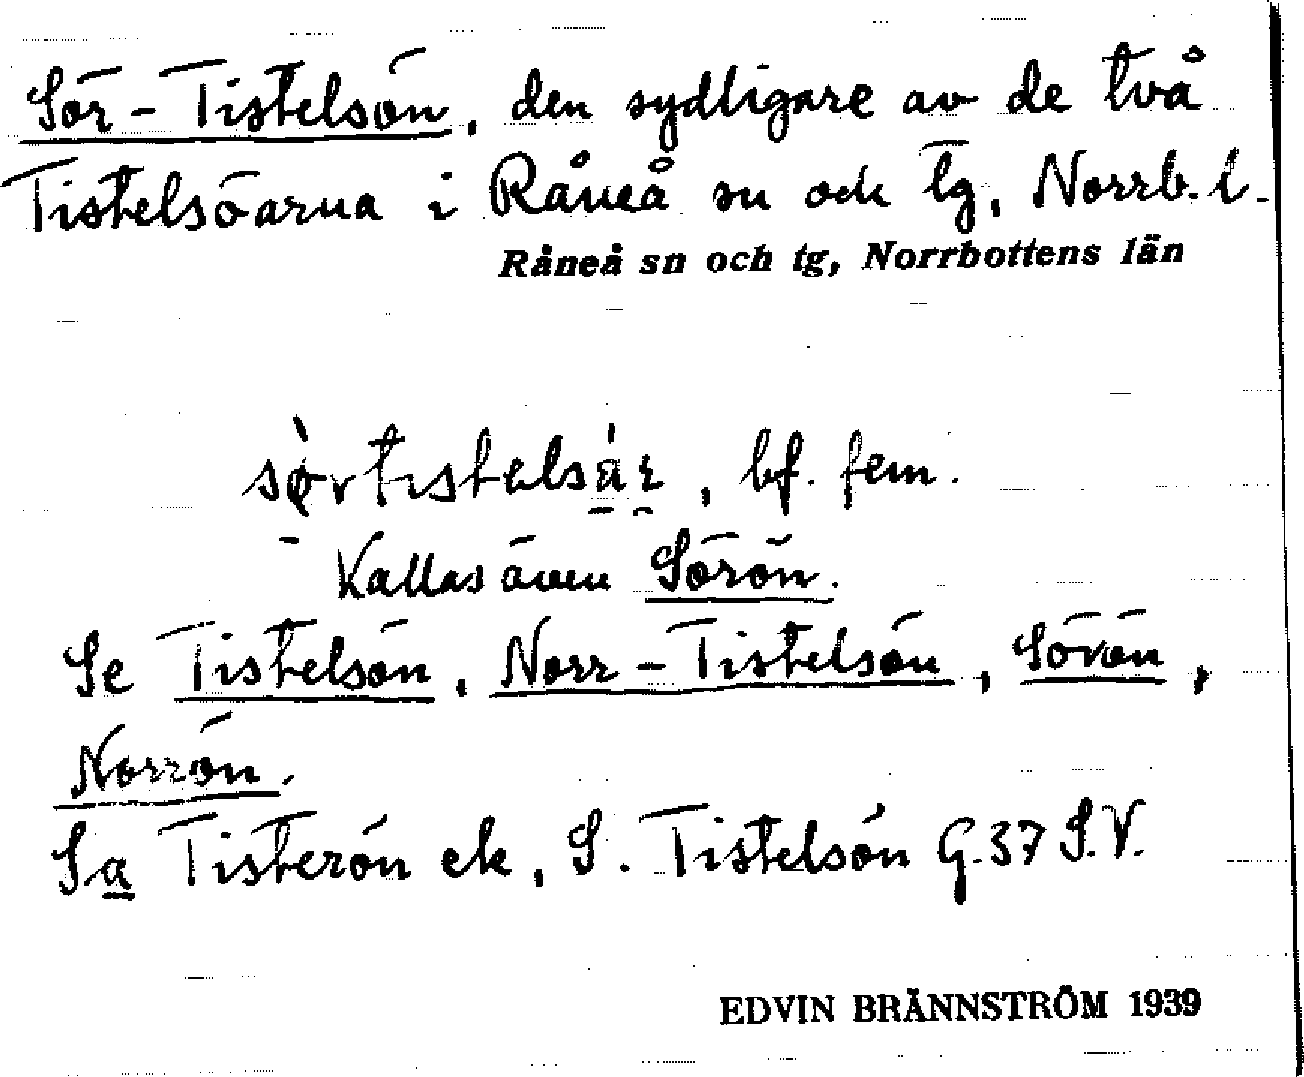 Sör-Tistelsön, den sydligare av de två
Tistelsöarna i Råneå sn och tg, Norrb. l.
Råneå sn och tg, Norrbottens län
bf. fem.
Kallas även Sörön.
Se Tistelsön, Norr-Tistelsön, Sörön,
Norrön.
Sa Tisterön ek, S. Tistelsön G.37 S.V.
EDVIN BRÄNNSTRÖM 1939